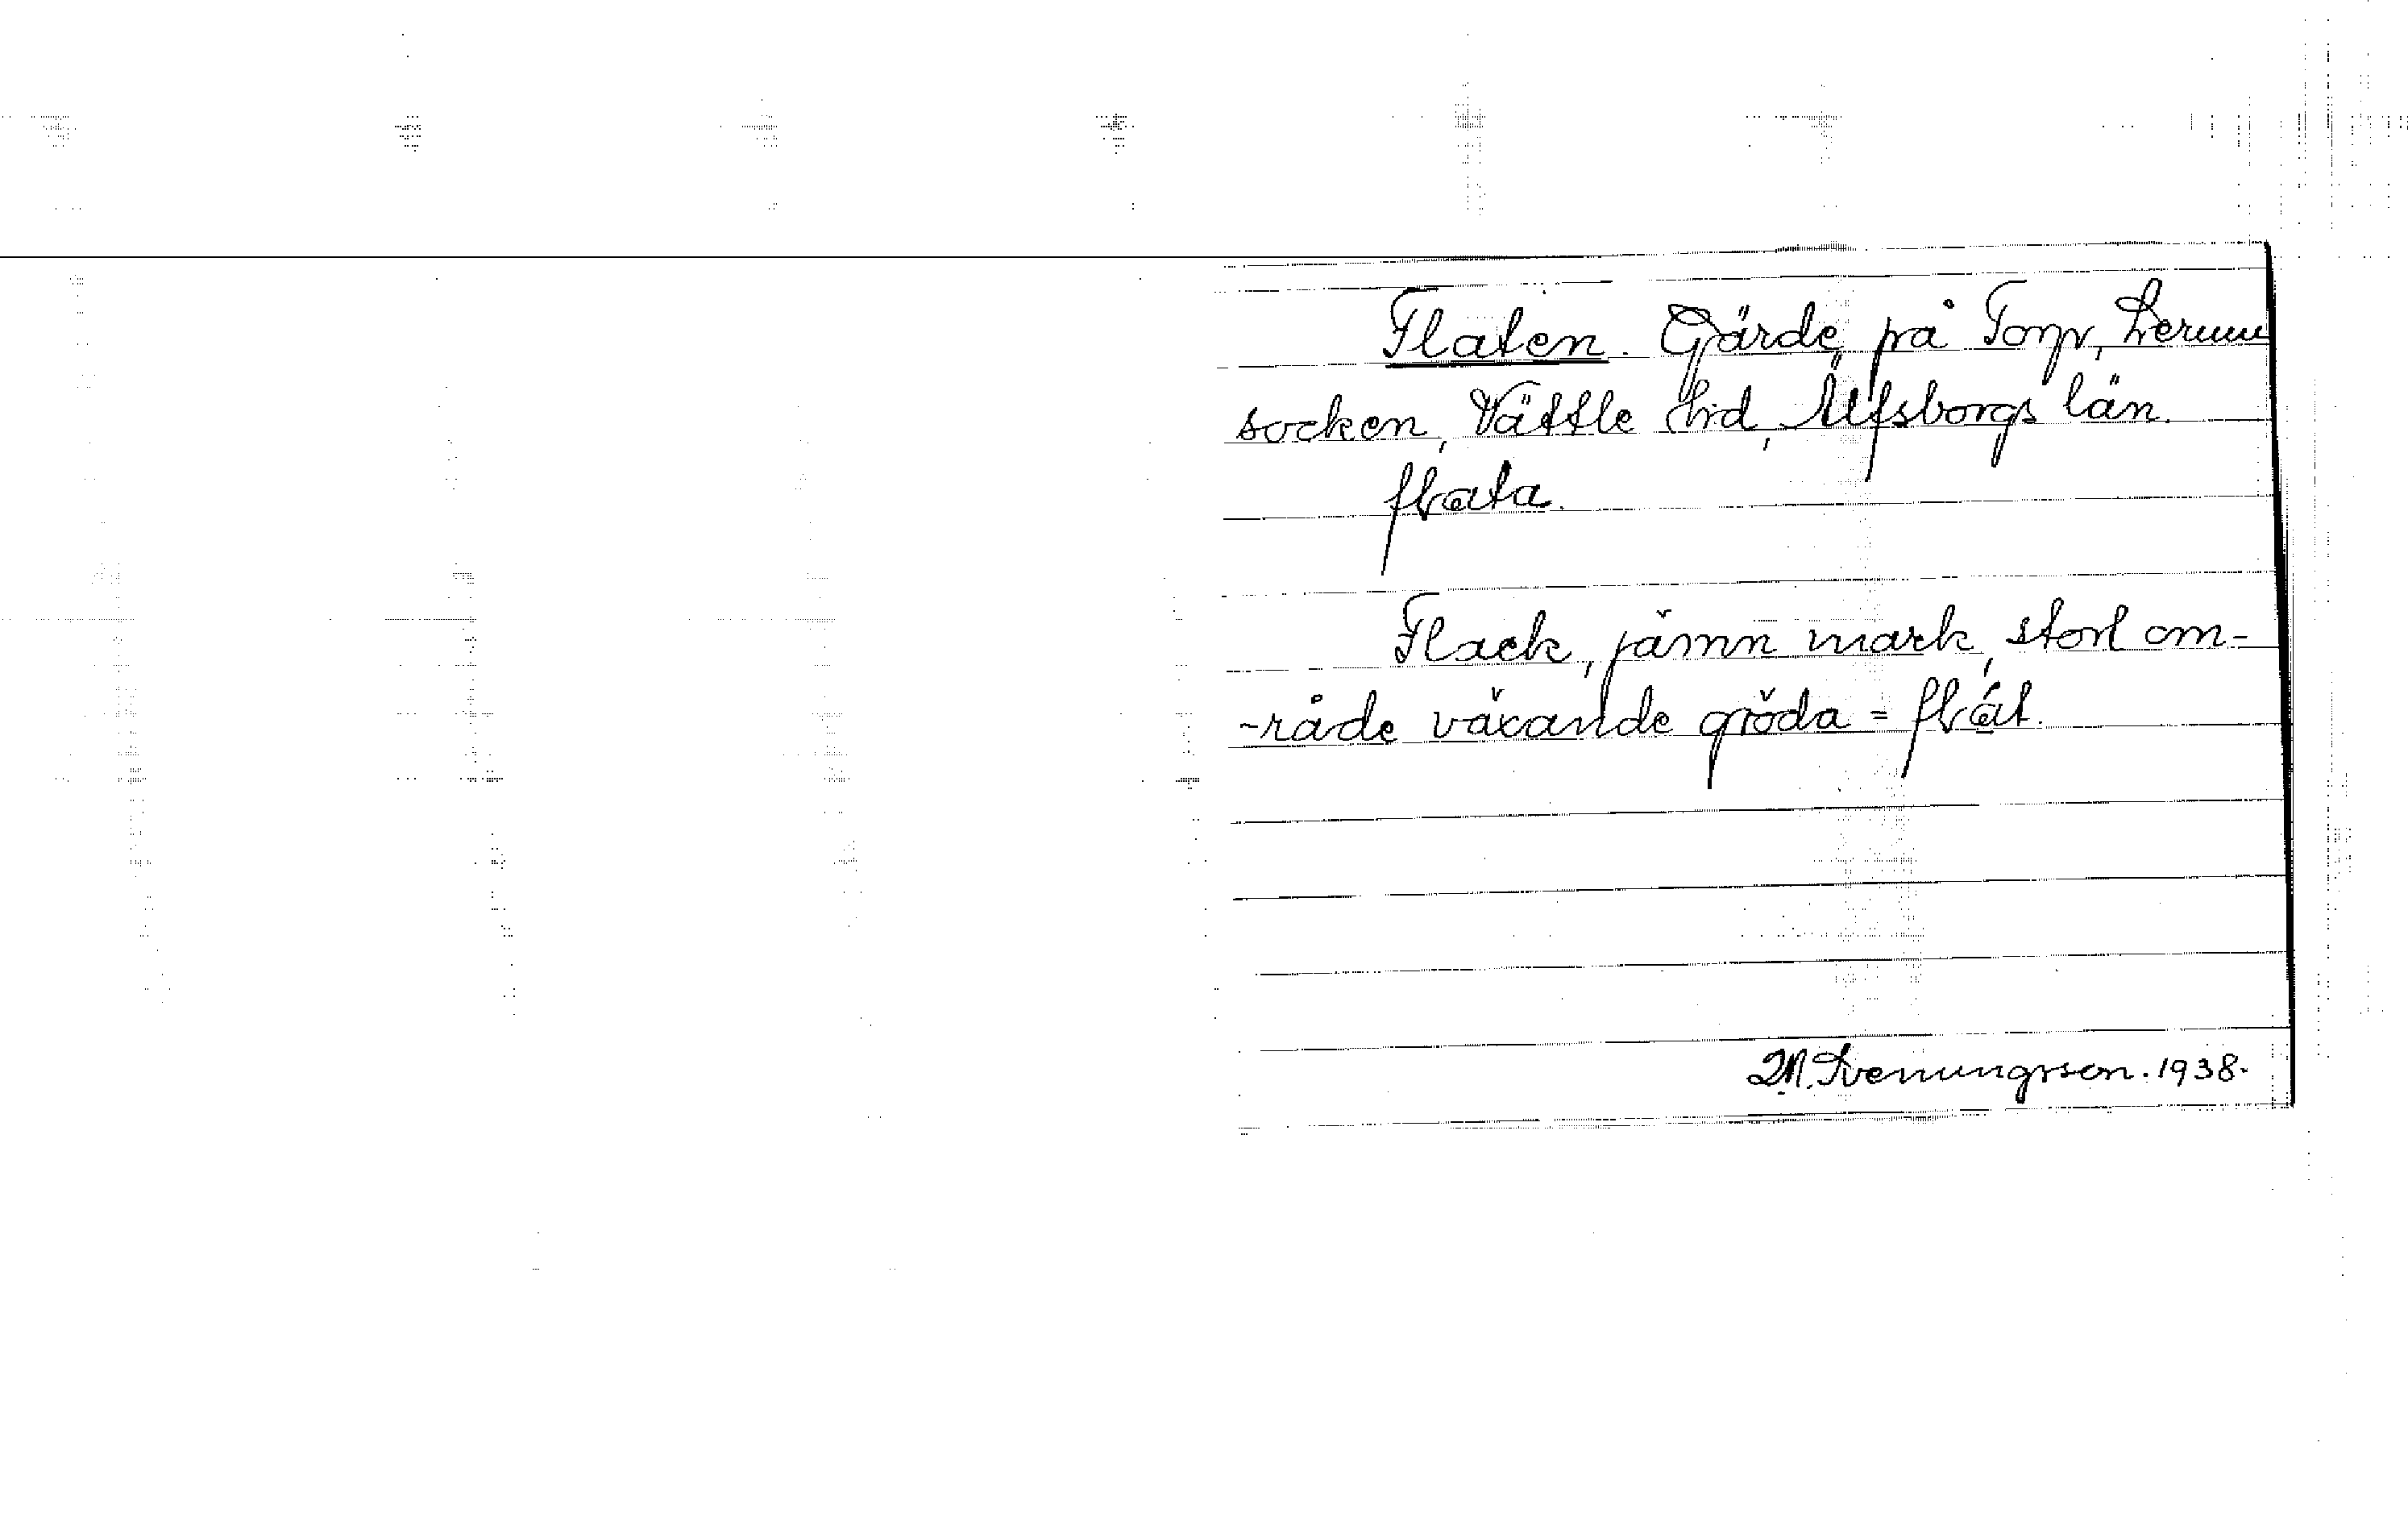 Flaten. Gärde på Torp, Lerum
socken, Vättle hd, Älfsborgs län.
flata.
Flack, jämn mark, stort om-
-råde växande gröda = flat.
M. Svenungsson. 1938.